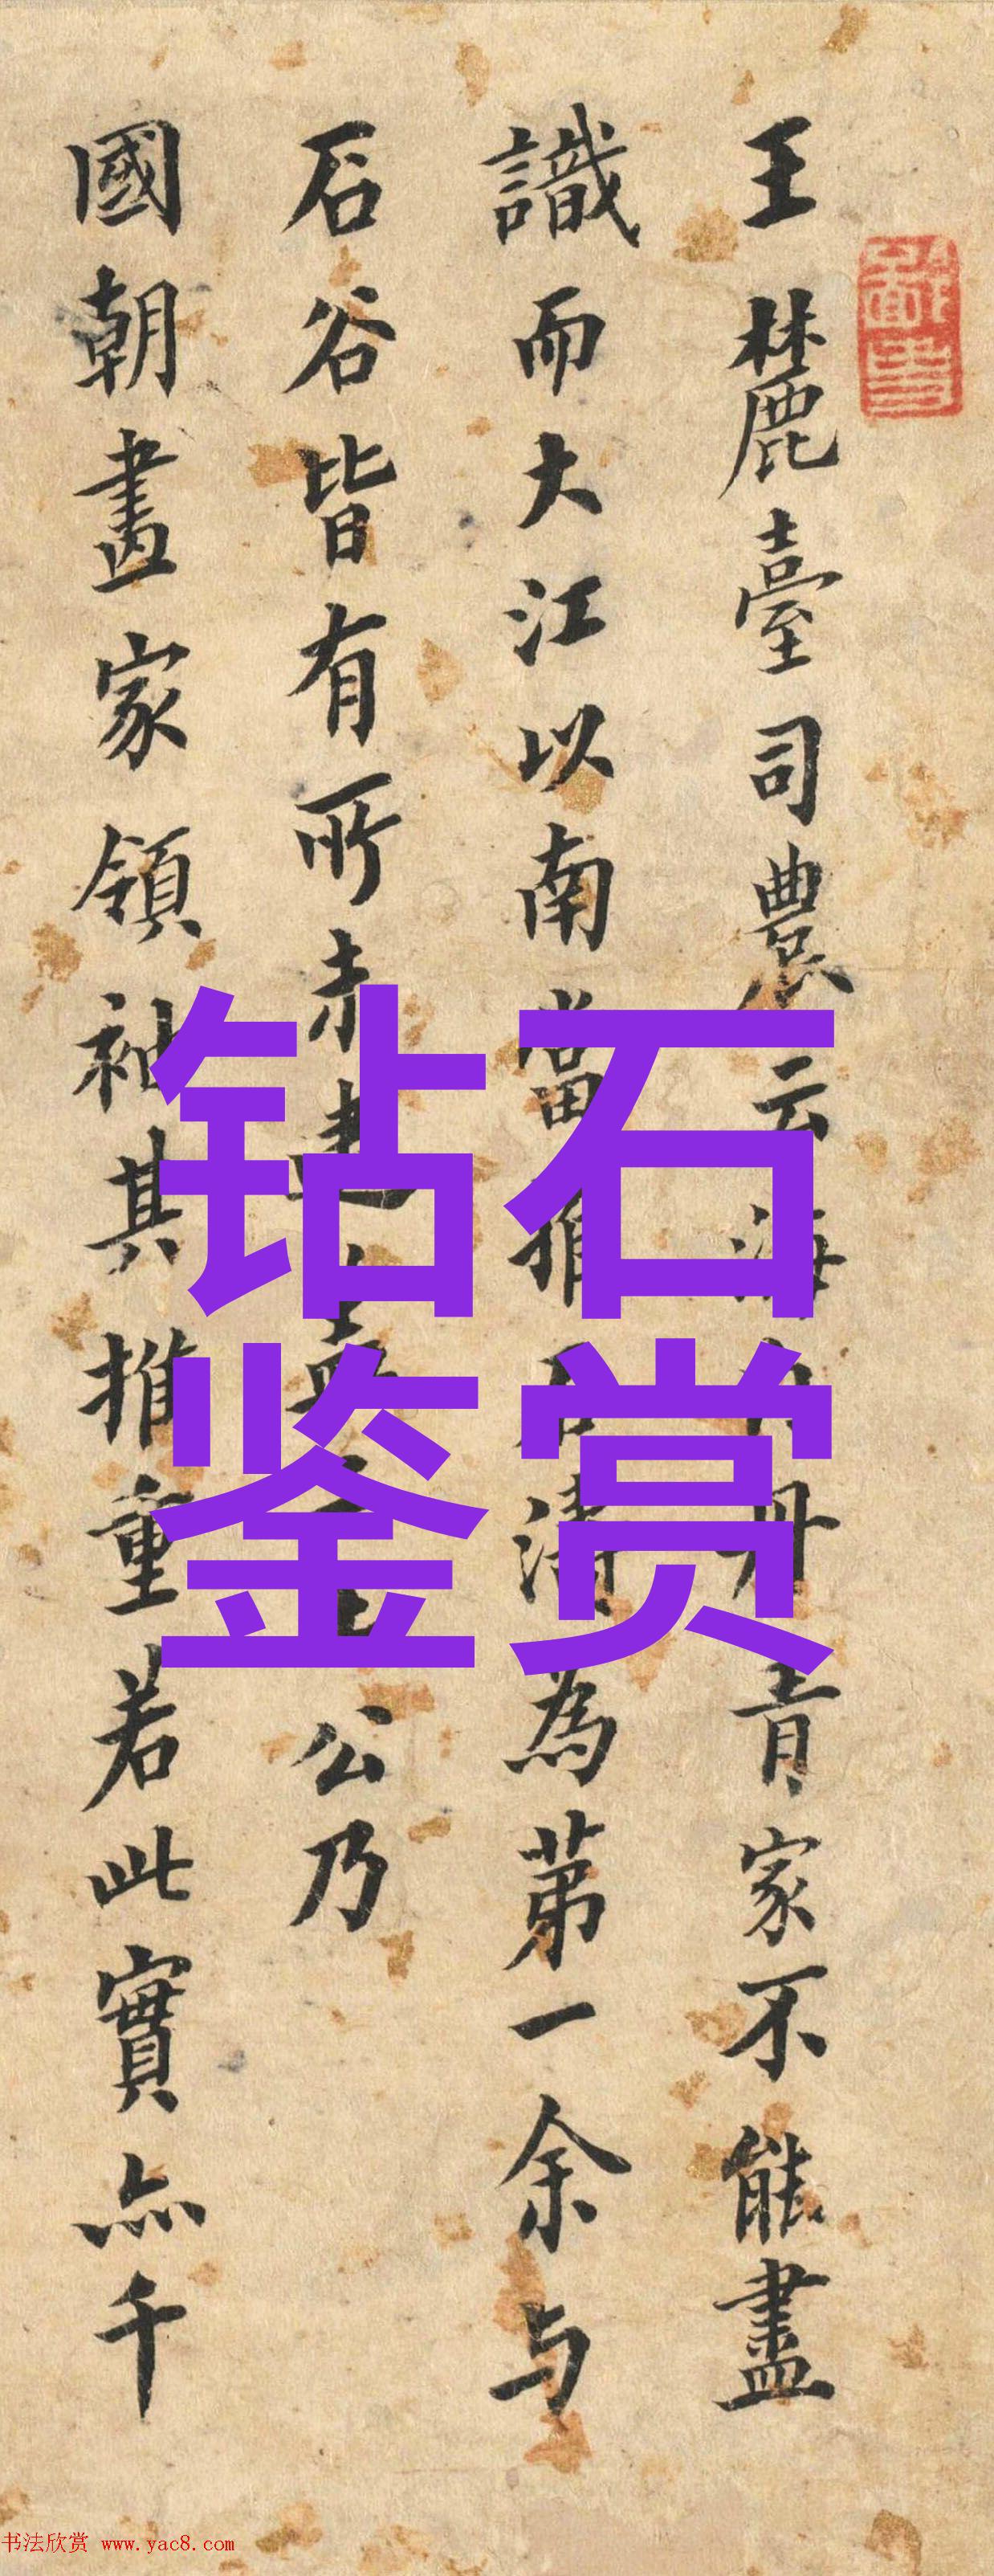 王麓臺司農云海內丹青家不能盡
識而大江以南當推石濤為第一余与
石谷皆有所未逮公乃
國朝畫家領袖其推重若此實亦千
钻石
鉴赏
书法欣赏 www.yac8.com